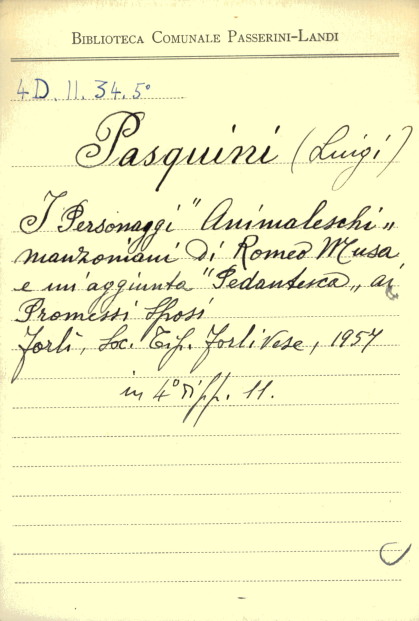 BIBLIOTECA COMUNALE PASSERINI-LANDI
4D. 11. 34. 5°
Pasquini (Luigi)
I Personaggi "Animaleschi"
manzoniani di Romeo Musa
e un'aggiunta "Pedantesca" ai
Promessi Sposi
Forlì, Soc. Tip. Forlivese, 1957
in 4° di pp. 11.